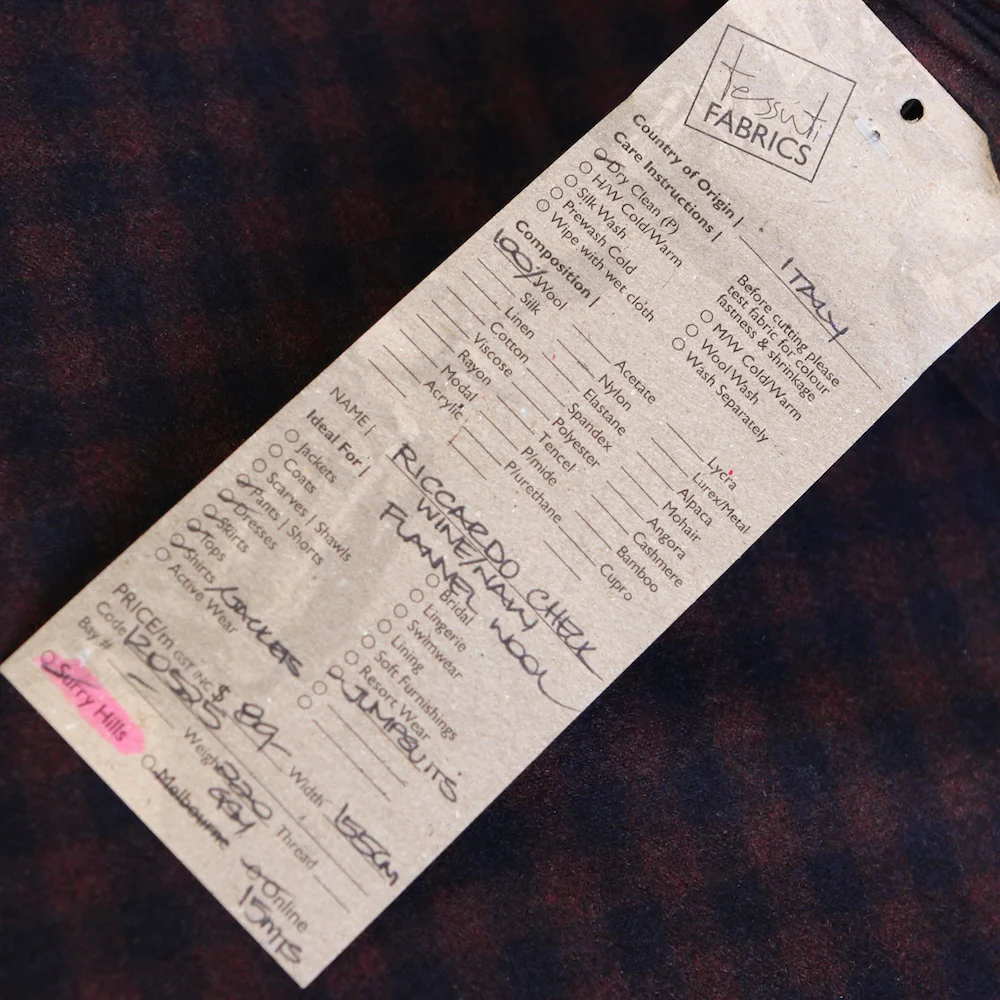 tessuti
FABRICS
Country of Origin | ITALY
Care Instructions |
Dry Clean (P)
H/W Cold/Warm
Silk Wash
Prewash Cold
Wipe with wet cloth
Before cutting please
test fabric for colour
fastness & shrinkage
M/W Cold/Warm
Wool Wash
Wash Separately
Composition |
100% Wool
Silk
Linen
Cotton
Viscose
Rayon
Modal
Acrylic
Acetate
Nylon
Elastane
Spandex
Polyester
Tencel
P/mide
P/urethane
Lycra
Lurex/Metal
Alpaca
Mohair
Angora
Cashmere
Bamboo
Cupro
NAME | RICCARDO CHECK
WINE/NAVY
FLANNEL WOOL
Ideal For |
Jackets
Coats
Scarves | Shawls
Pants | Shorts
Dresses
Skirts
Tops
Shirts /JACKETS
Active Wear
Bridal
Lingerie
Swimwear
Lining
Soft Furnishings
Resort Wear
JUMPSUITS
PRICE/m GST INC $ 89- Width 155CM
Code 120525 Weight 220 Thread
Bay # GSM
Surry Hills Melbourne Online
15MTS